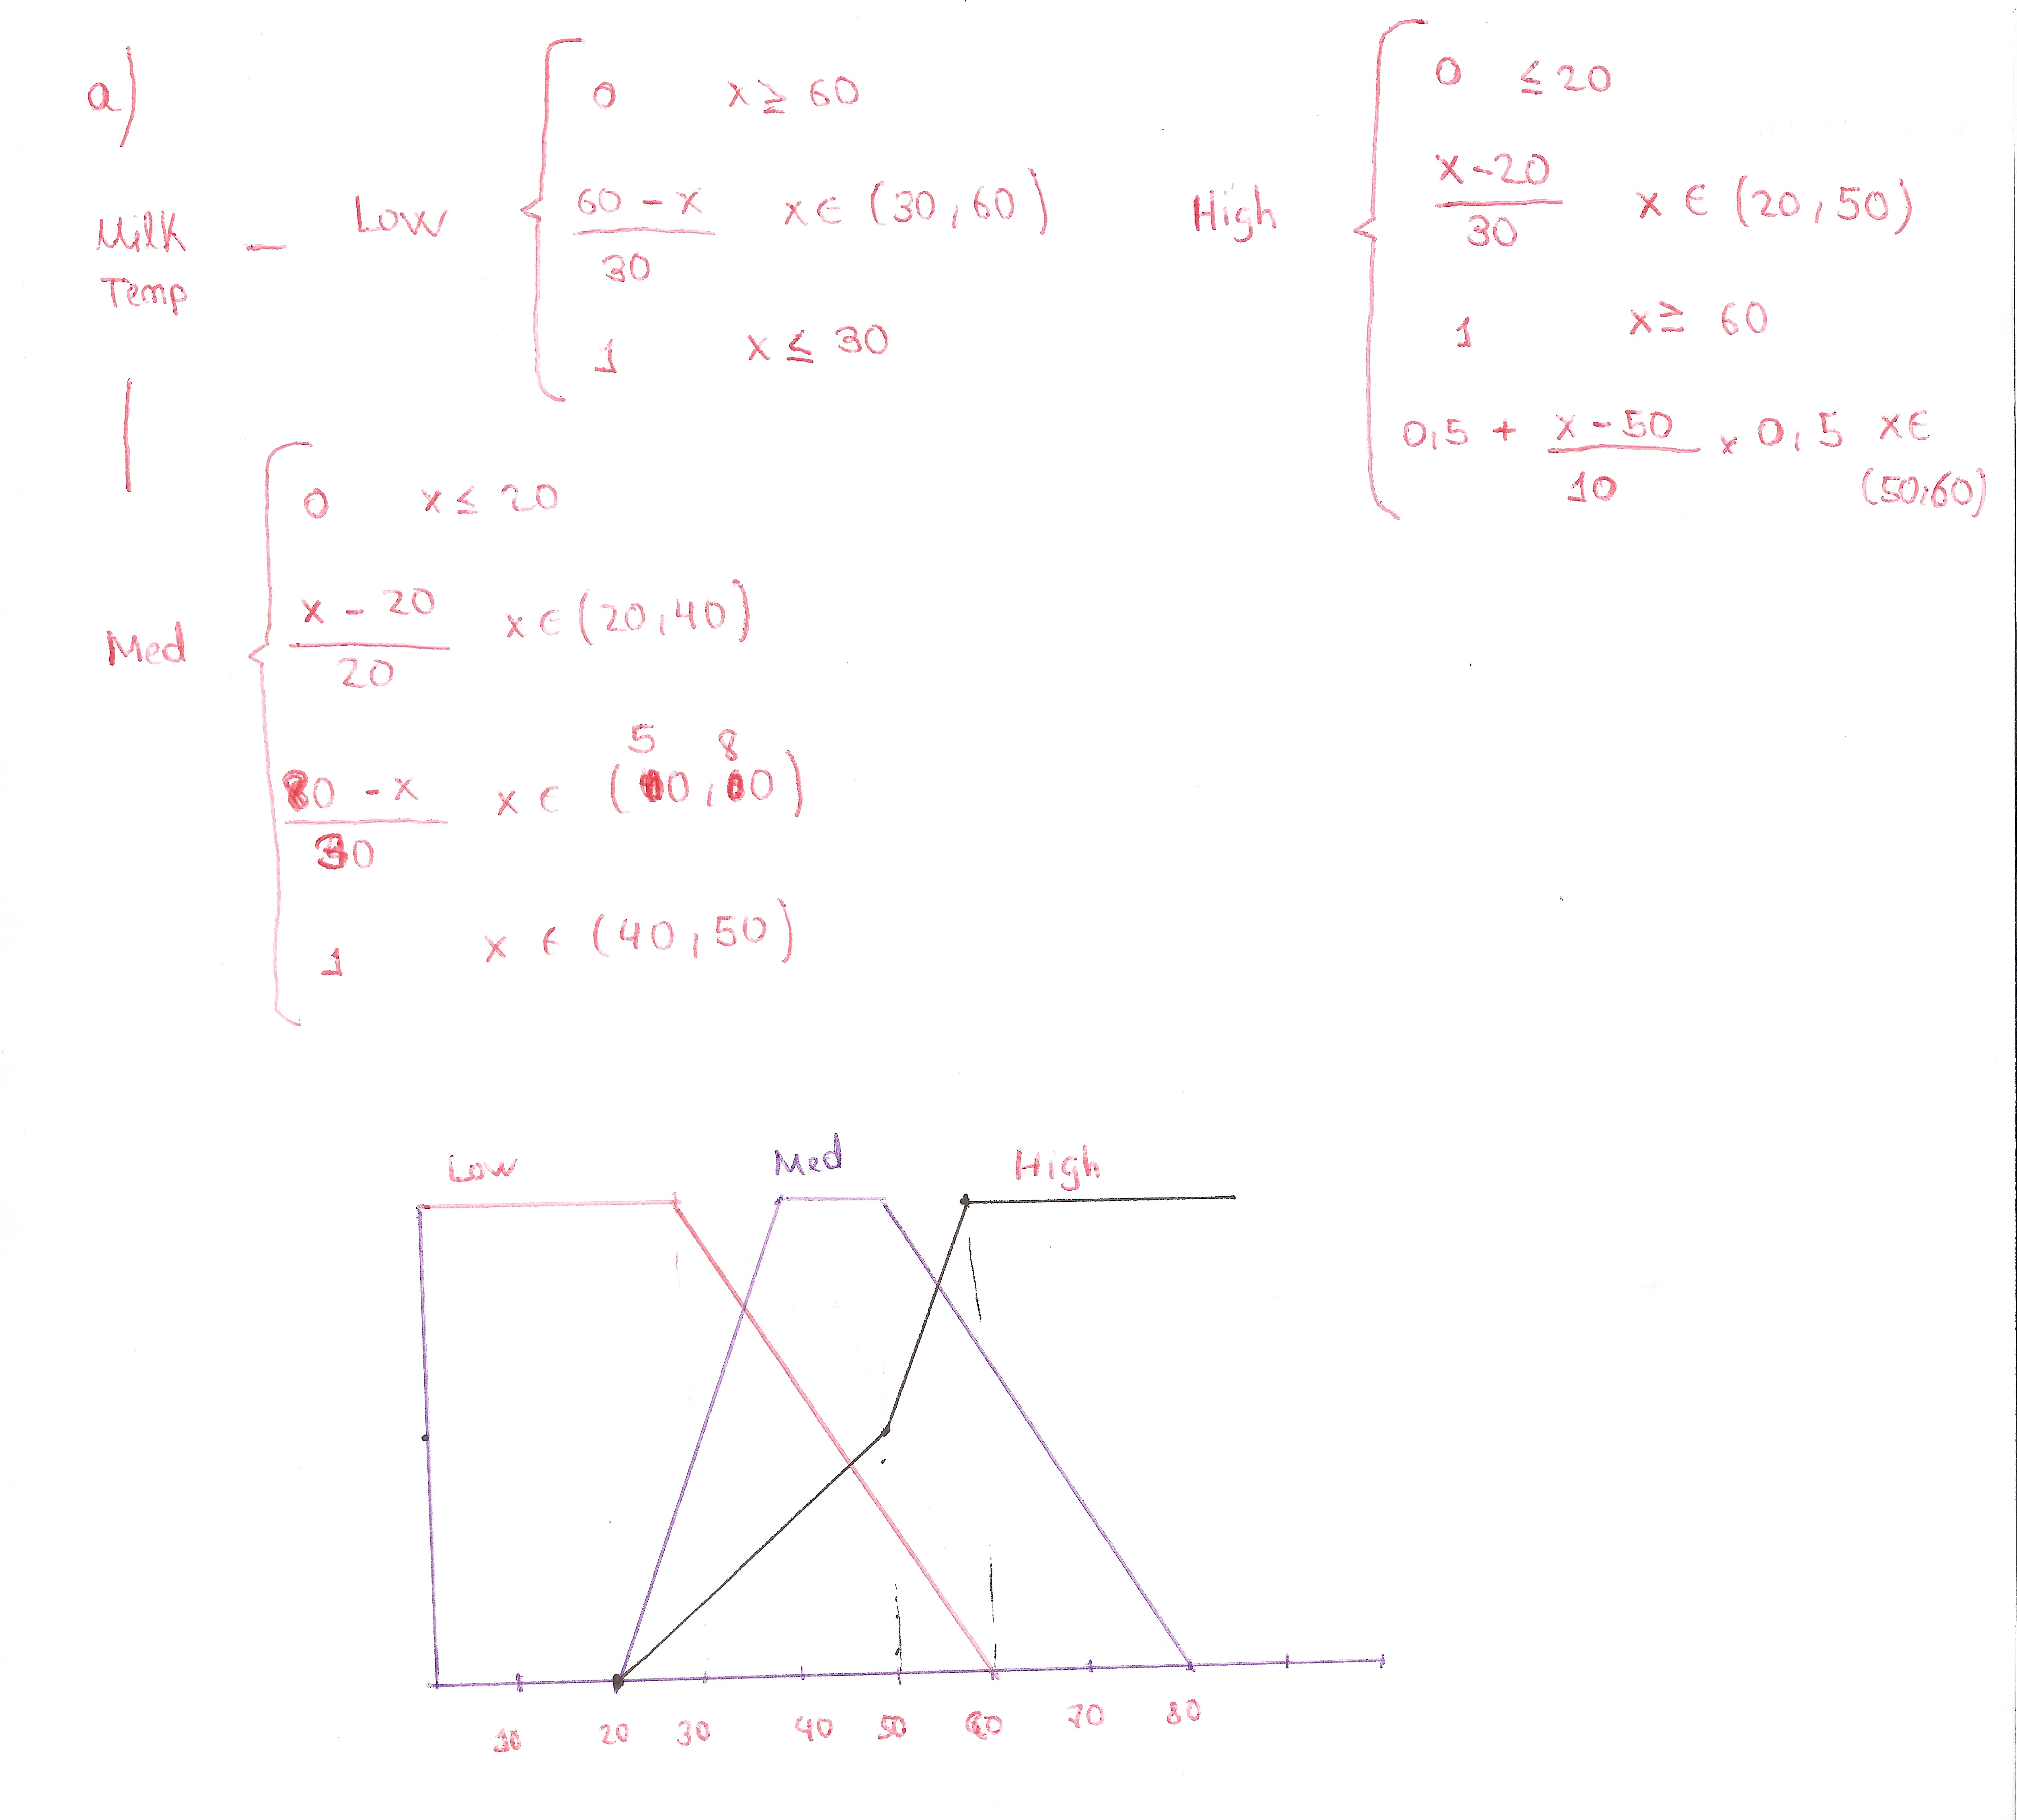 a)
Milk Temp — Low { 0 x ≥ 60
60 - x / 30 x ∈ (30, 60)
1 x ≤ 30
High { 0 ≤ 20
x - 20 / 30 x ∈ (20, 50)
1 x ≥ 60
0,5 + x - 50 / 10 × 0,5 x ∈ (50,60)
Med { 0 x ≤ 20
x - 20 / 20 x ∈ (20, 40)
80 - x / 30 x ∈ (50, 80)
1 x ∈ (40, 50)
Low Med High
10 20 30 40 50 60 70 80